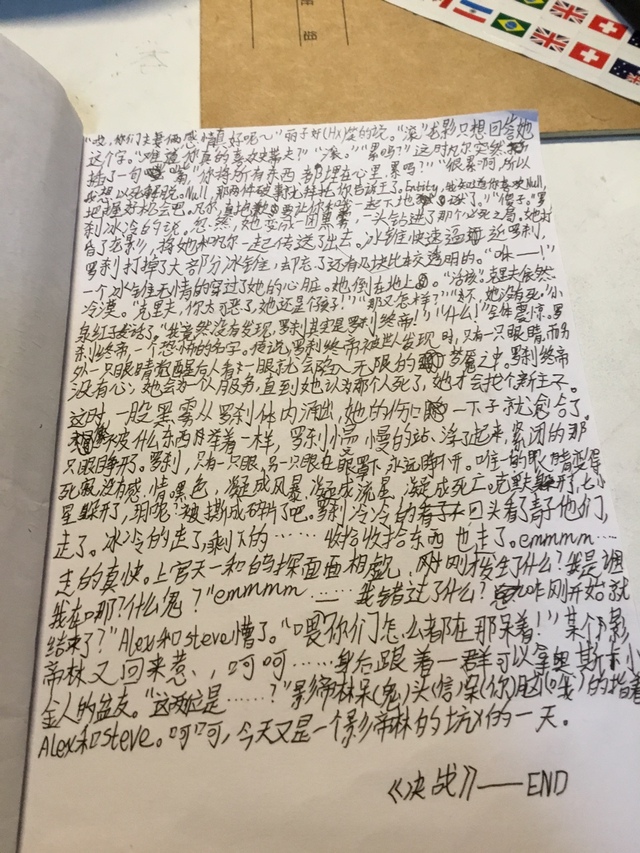 "哎,你们夫妻俩感情真好呢~" 萌子好(Hx)度的说。"滚"龙影只想回答她
这个字。"难道你真的喜欢史蒂夫?" "滚。" "累吗?" 这时凡尔突然
插了一句嘴 "你将所有东西都埋在心里,累吗?" "很累啊,所以
我想以死解脱。Null,那两件破事
冰冷的说。忽然,她变成一团黑雾,一头钻进了那个必死之局。她打
昏了龙影,将她和凡尔一起传送了出去。冰锥快速逼近罗刹,
罗刹打掉了大部分冰锥,却忘了还有几块比较透明的。"咻——!"
一个冰锥无情的穿过了她的心脏。她倒在地上。"活该"克里夫依然
冷漠。克里夫,你太可恶了,她还是个孩子!" "那又怎样?" "不,她没有死"小
泉红子发话了。"我竟然没有发现,罗刹其实是罗刹终帝!" "什么!"全体震惊。罗
刹终帝,一个恐怖的名字。传说,罗刹终帝被世人发现时,只有一只眼睛,而另
外一只眼睛 后人看一眼就会陷入无限的梦魇之中。罗刹终帝
没有心,她会为一个人服务,直到她认为那个人死了,她才会找个新主人。
这时一股黑雾从罗刹体内涌出,她的伤口一下子就愈合了。
被什么东西举着一样,罗刹慢慢的站、浮了起来,紧闭的那
只眼睁开了。罗刹,只有一只眼,另一只眼在眼罩下永远睁不开。唯一的眼睛变得
死寂没有感情,黑色,凝成风暴,凝成流星,凝成死亡。克里夫躲开了,七小
星躲开了,玥呢?被撕成碎片了吧。罗刹冷冷的回头看了青子他们,
走了。冰冷的走了,剩下的……收拾收拾东西也走了。emmmm…
走的真快。上官天一和的探面面相觑,刚刚发生了什么?我是谁
我在哪?什么鬼?"emmmm……我错过了什么?咋刚开始就
结束了?"Alex和steve懵了。"喂你们怎么都在那呆着!"某个影
帝林又回来惹、、呵呵……身后跟着一群可以拿奥斯卡小
金人的盆友。"这两位是……?"影帝林呆(鬼)头(信)呆(你)脑(哒)的指着
Alex和steve。呵呵,今天又是一个影帝林的坑x的一天。
《决战》——END